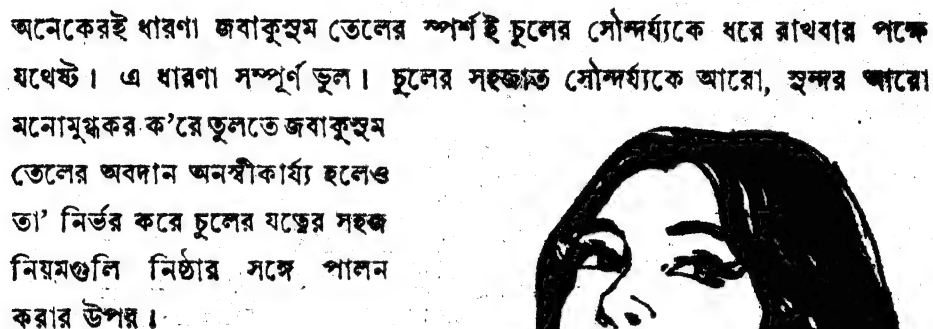 অনেকেরই ধারণা জবাকুসুম তেলের স্পর্শই চুলের সৌন্দর্য্যকে ধরে রাখবার পক্ষে
যথেষ্ট। এ ধারণা সম্পূর্ণ ভুল। চুলের সহজাত সৌন্দর্য্যকে আরো, সুন্দর আরো
মনোমুগ্ধকর ক'রে তুলতে জবাকুসুম
তেলের অবদান অনস্বীকার্য্য হলেও
তা' নির্ভর করে চুলের যত্নের সহজ
নিয়মগুলি নিষ্ঠার সঙ্গে পালন
করার উপর।